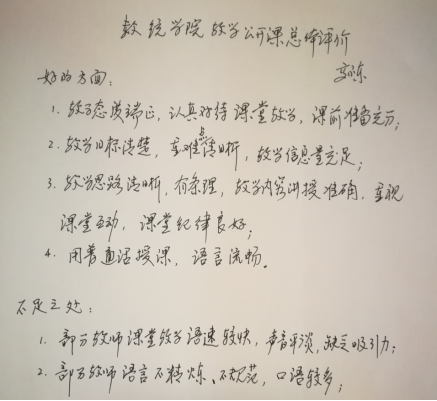 数统学院教学公开课总体评价
好的方面：
1. 教学态度端正，认真对待课堂教学，课前准备充分；
2. 教学目标清楚，重难点清晰，教学信息量充足；
3. 教学思路清晰，有条理，教学内容讲授准确，重视
课堂互动，课堂纪律良好；
4. 用普通话授课，语言流畅。
不足之处：
1. 部分教师课堂教学语速较快，声音平淡，缺乏吸引力；
2. 部分教师语言不精炼、不规范，口语较多；